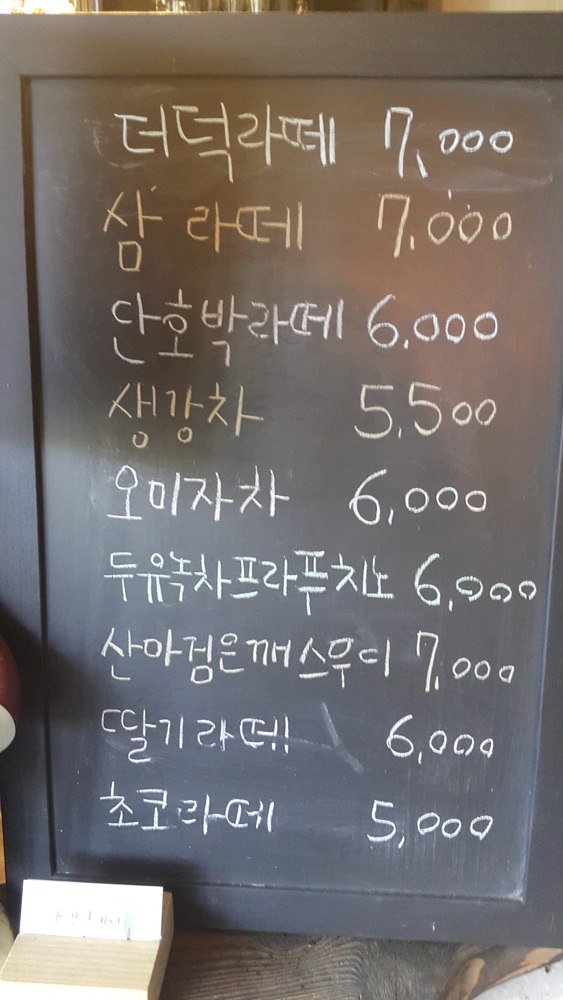 더덕라떼 7,000
삼 라떼 7,000
단호박라떼 6,000
생강차 5,500
오미자차 6,000
두유녹차프라푸치노 6,000
산마검은깨스무디 7,000
딸기라떼!! 6,000
초코라떼 5,000